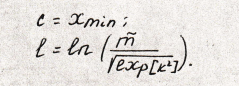 c = x min ;
l = ln ( m̃ / √exp[k²] ).